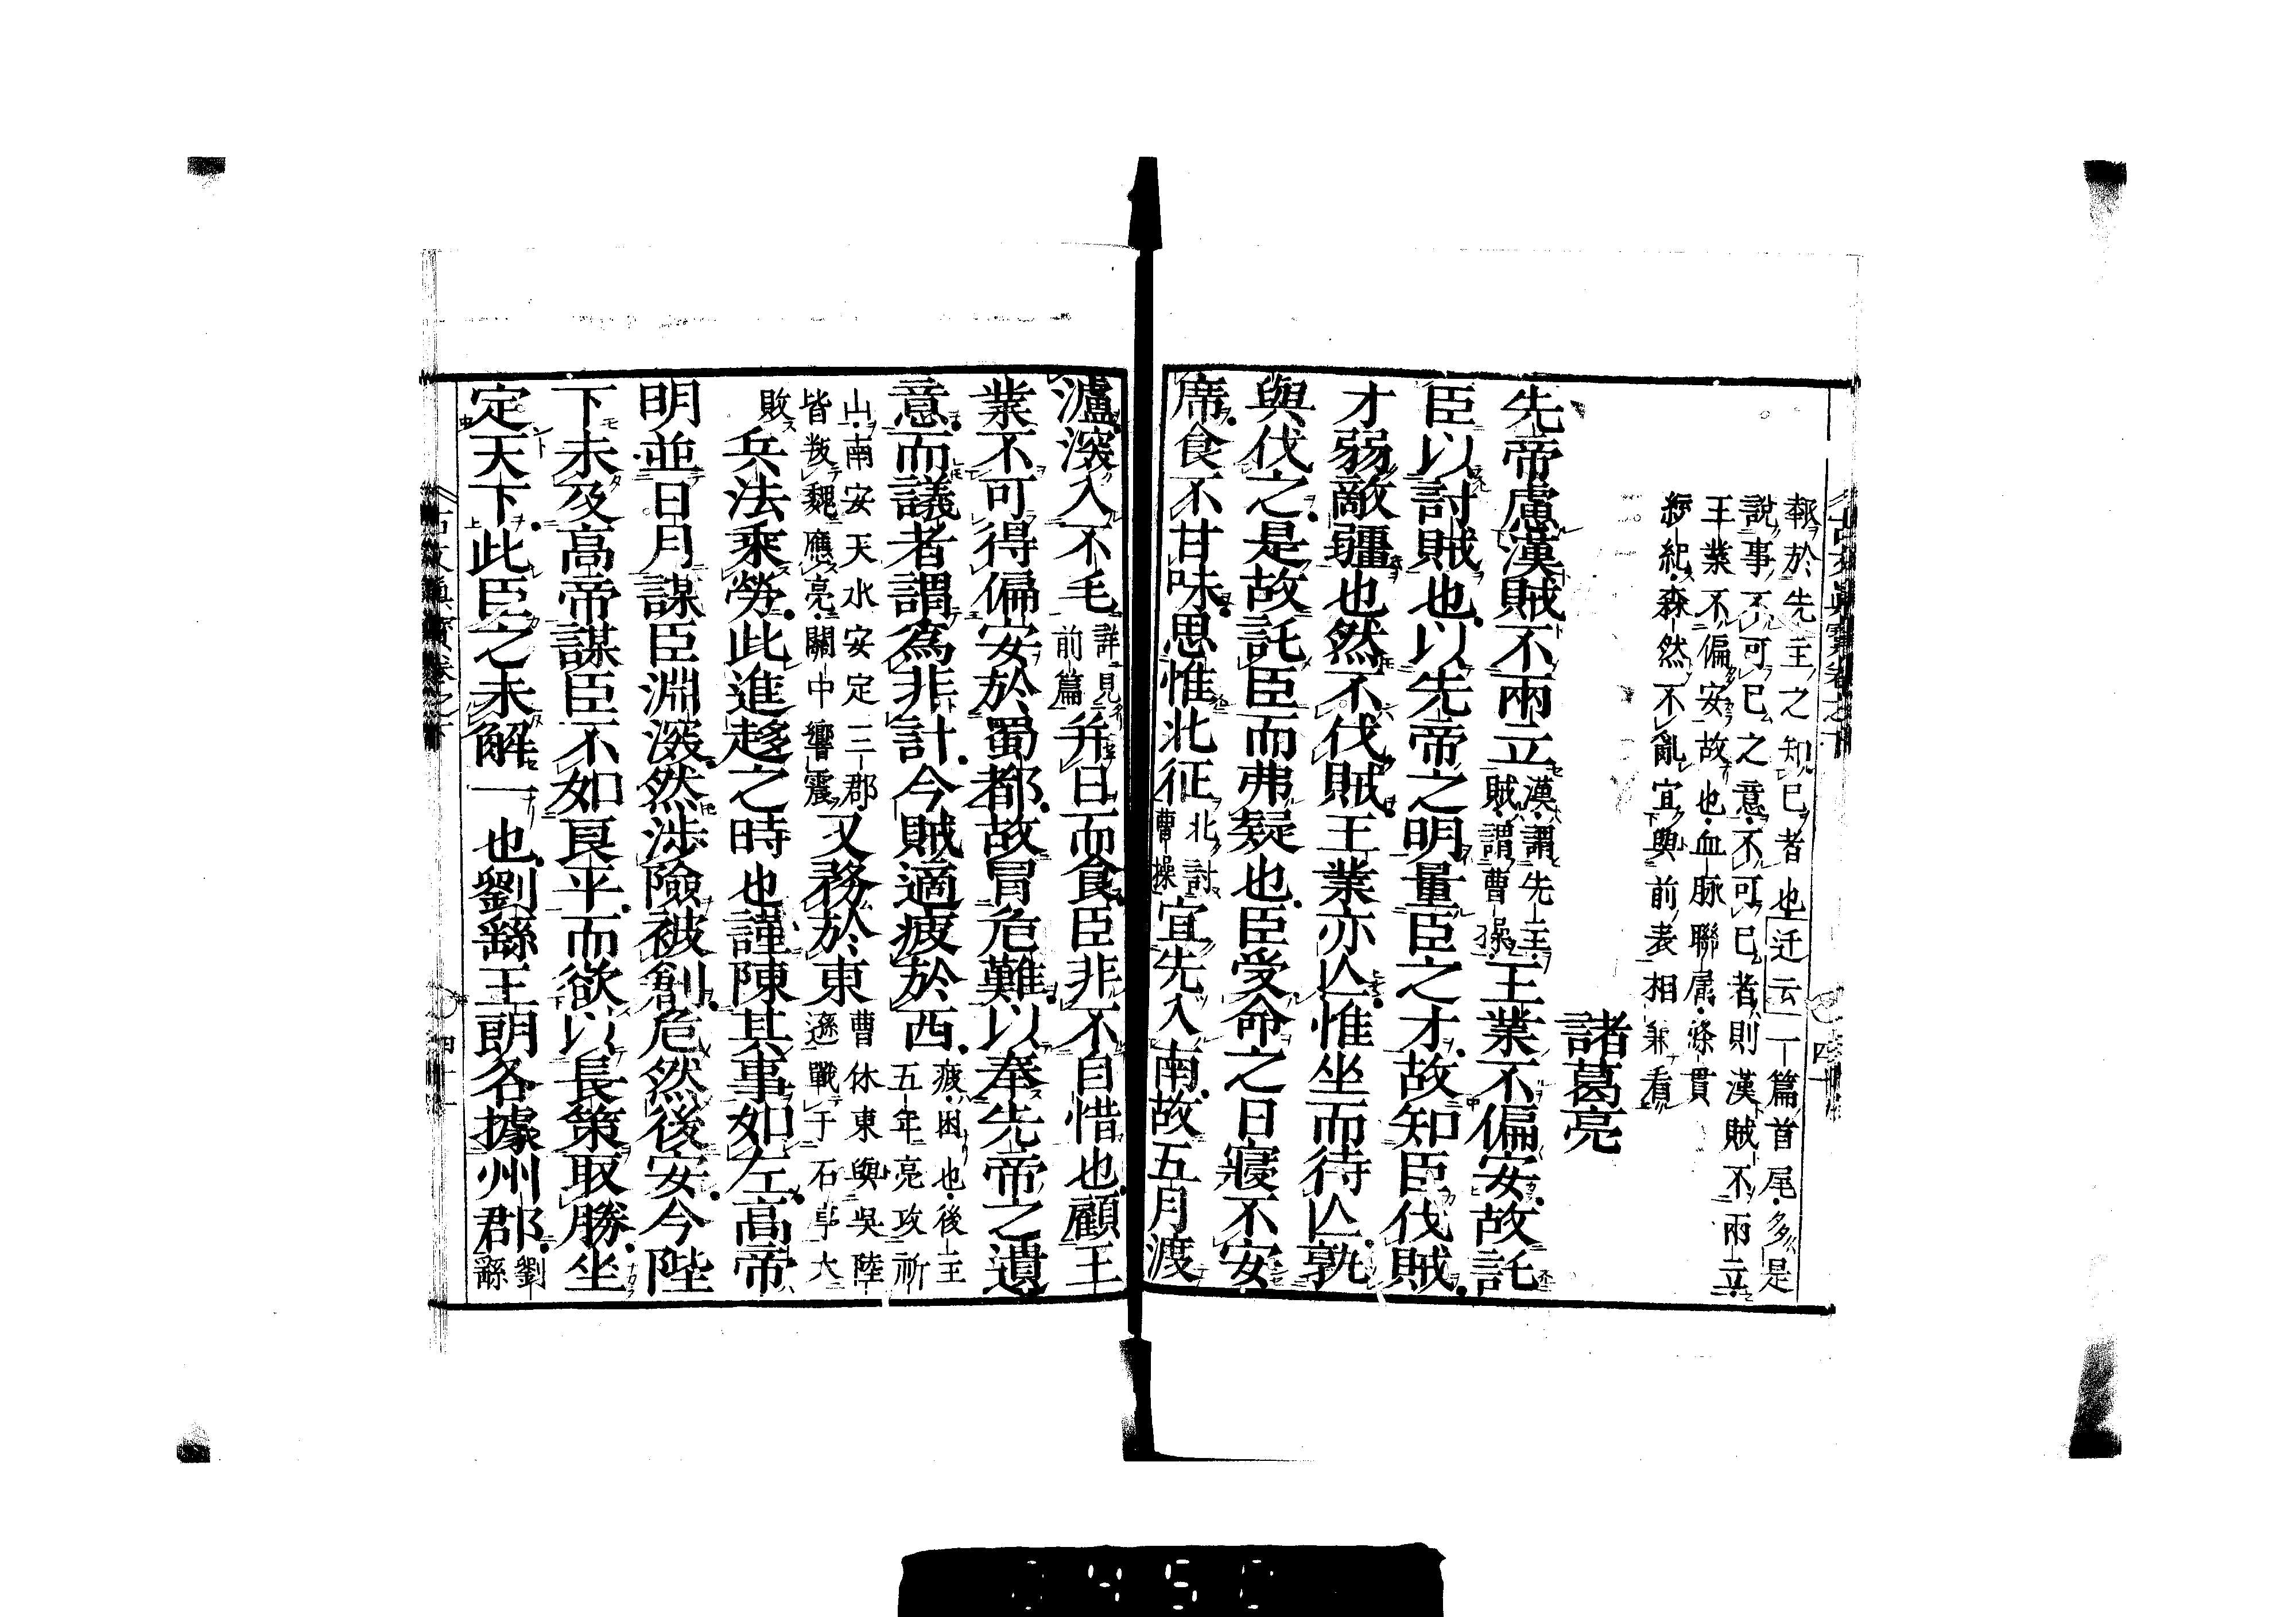 報於先主之知己者也迂云一篇首尾多是
說事不可已之意不可已者則漢賊不兩立
王業不偏安故也血脉聯屬條貫
經紀森然不亂宜與前表相兼看
諸葛亮
先帝慮漢賊不兩立漢謂先主賊謂曹操王業不偏安故託
臣以討賊也以先帝之明量臣之才故知臣伐賊
才弱敵疆也然不伐賊王業亦亾惟坐而待亾孰
與伐之是故託臣而弗疑也臣受命之日寢不安
席食不甘味思惟北征北討曹操宜先入南故五月渡
瀘深入不毛詳見前篇并日而食臣非不自惜也顧王
業不可得偏安於蜀都故冒危難以奉先帝之遺
意而議者謂為非計今賊適疲於西疲困也後主五年亮攻祈
山南安天水安定三郡皆叛魏應亮關中響震又務於東曹休東與吳陸遜戰于石亭大
敗兵法乘勞此進趍之時也謹陳其事如左高帝
明並日月謀臣淵深然涉險被創危然後安今陛
下未及高帝謀臣不如良平而欲以長策取勝坐
定天下此臣之未解一也劉繇王朗各據州郡劉繇
古文眞寶卷之下